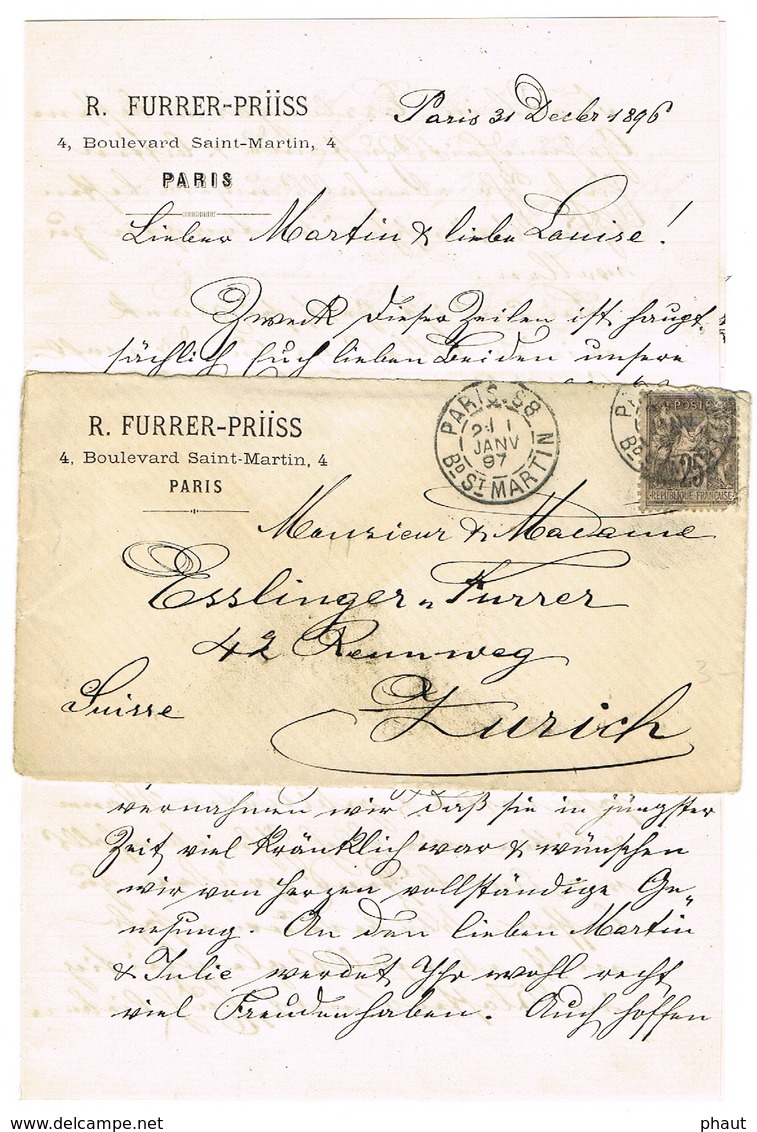 R. FURRER-PRIISS
4, Boulevard Saint-Martin, 4
PARIS
Paris 31 Decbr 1896
Lieber Martin & liebe Louise!
Zweck dieser Zeilen ist haupt-
sächlich Euch lieben Beiden unsere
R. FURRER-PRIISS
4, Boulevard Saint-Martin, 4
PARIS
PARIS-S8
1
JANV
97
Bd ST MARTIN
POSTE
25
REPUBLIQUE FRANÇAISE
Monsieur & Madame
Esslinger-Furrer
42 Rennweg
Zurich
Suisse
3-
vernahmen wir daß sie in jüngster
Zeit viel kränklich war & wünschen
wir von Herzen vollständige Ge-
nesung. An den lieben Martin
& Julie werdet Ihr wohl recht
viel Freuden haben. Auch hoffen
www.delcampe.net
phaut